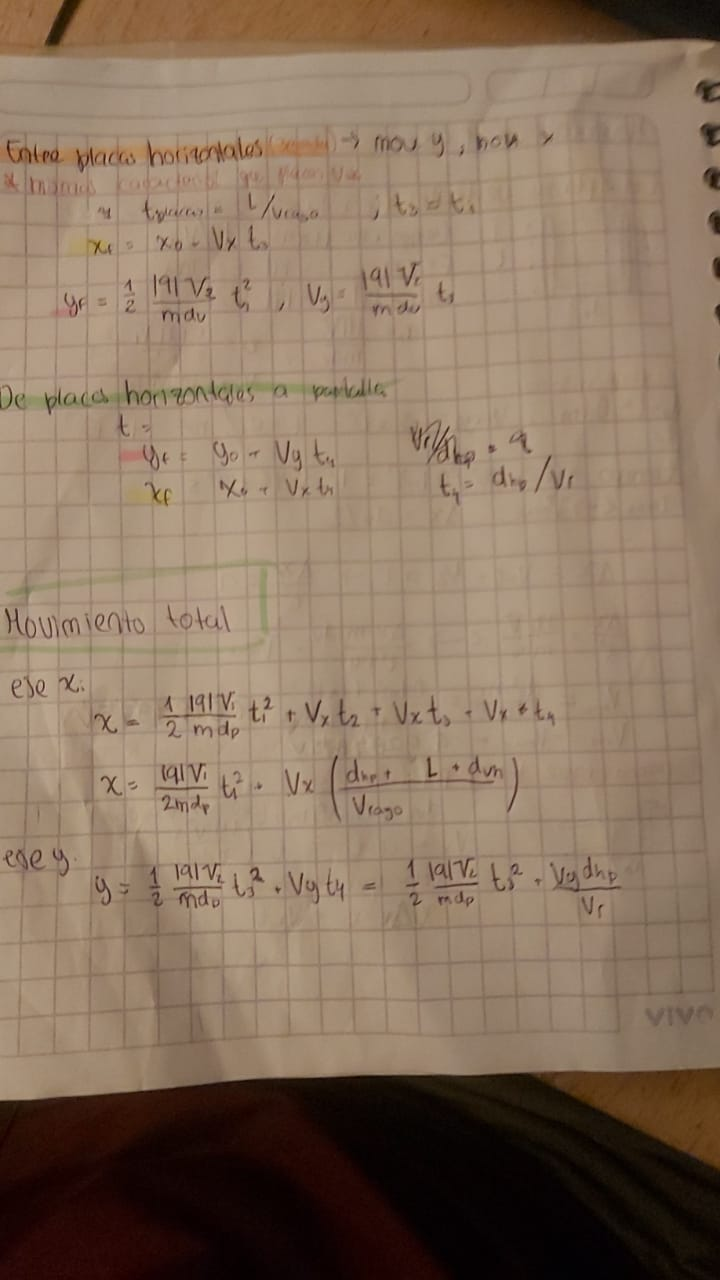 Entre placas horizontales → mov y, mov x
t placas = L/Vrayo ; t₃ = t₁
xf = x₀ + Vx t₃
yf = 1/2 |q|V₂/mdv t₁², Vy = |q|V₁/mdv t₃
De placas horizontales a pantalla
t =
yf = y₀ + Vy t₄
xf x₀ + Vx t₄ t₄ = dhp/Vr
Movimiento total
eje x:
x = 1/2 |q|V₁/mdp t₁² + Vx t₂ + Vx t₃ + Vx * t₄
x = |q|V₁/2mdp t₁² + Vx (dhp + L + dvh/Vrayo)
eje y.
y = 1/2 |q|V₂/mdp t₃² + Vy t₄ = 1/2 |q|V₂/mdp t₃² + Vy dhp/Vr
VIVO